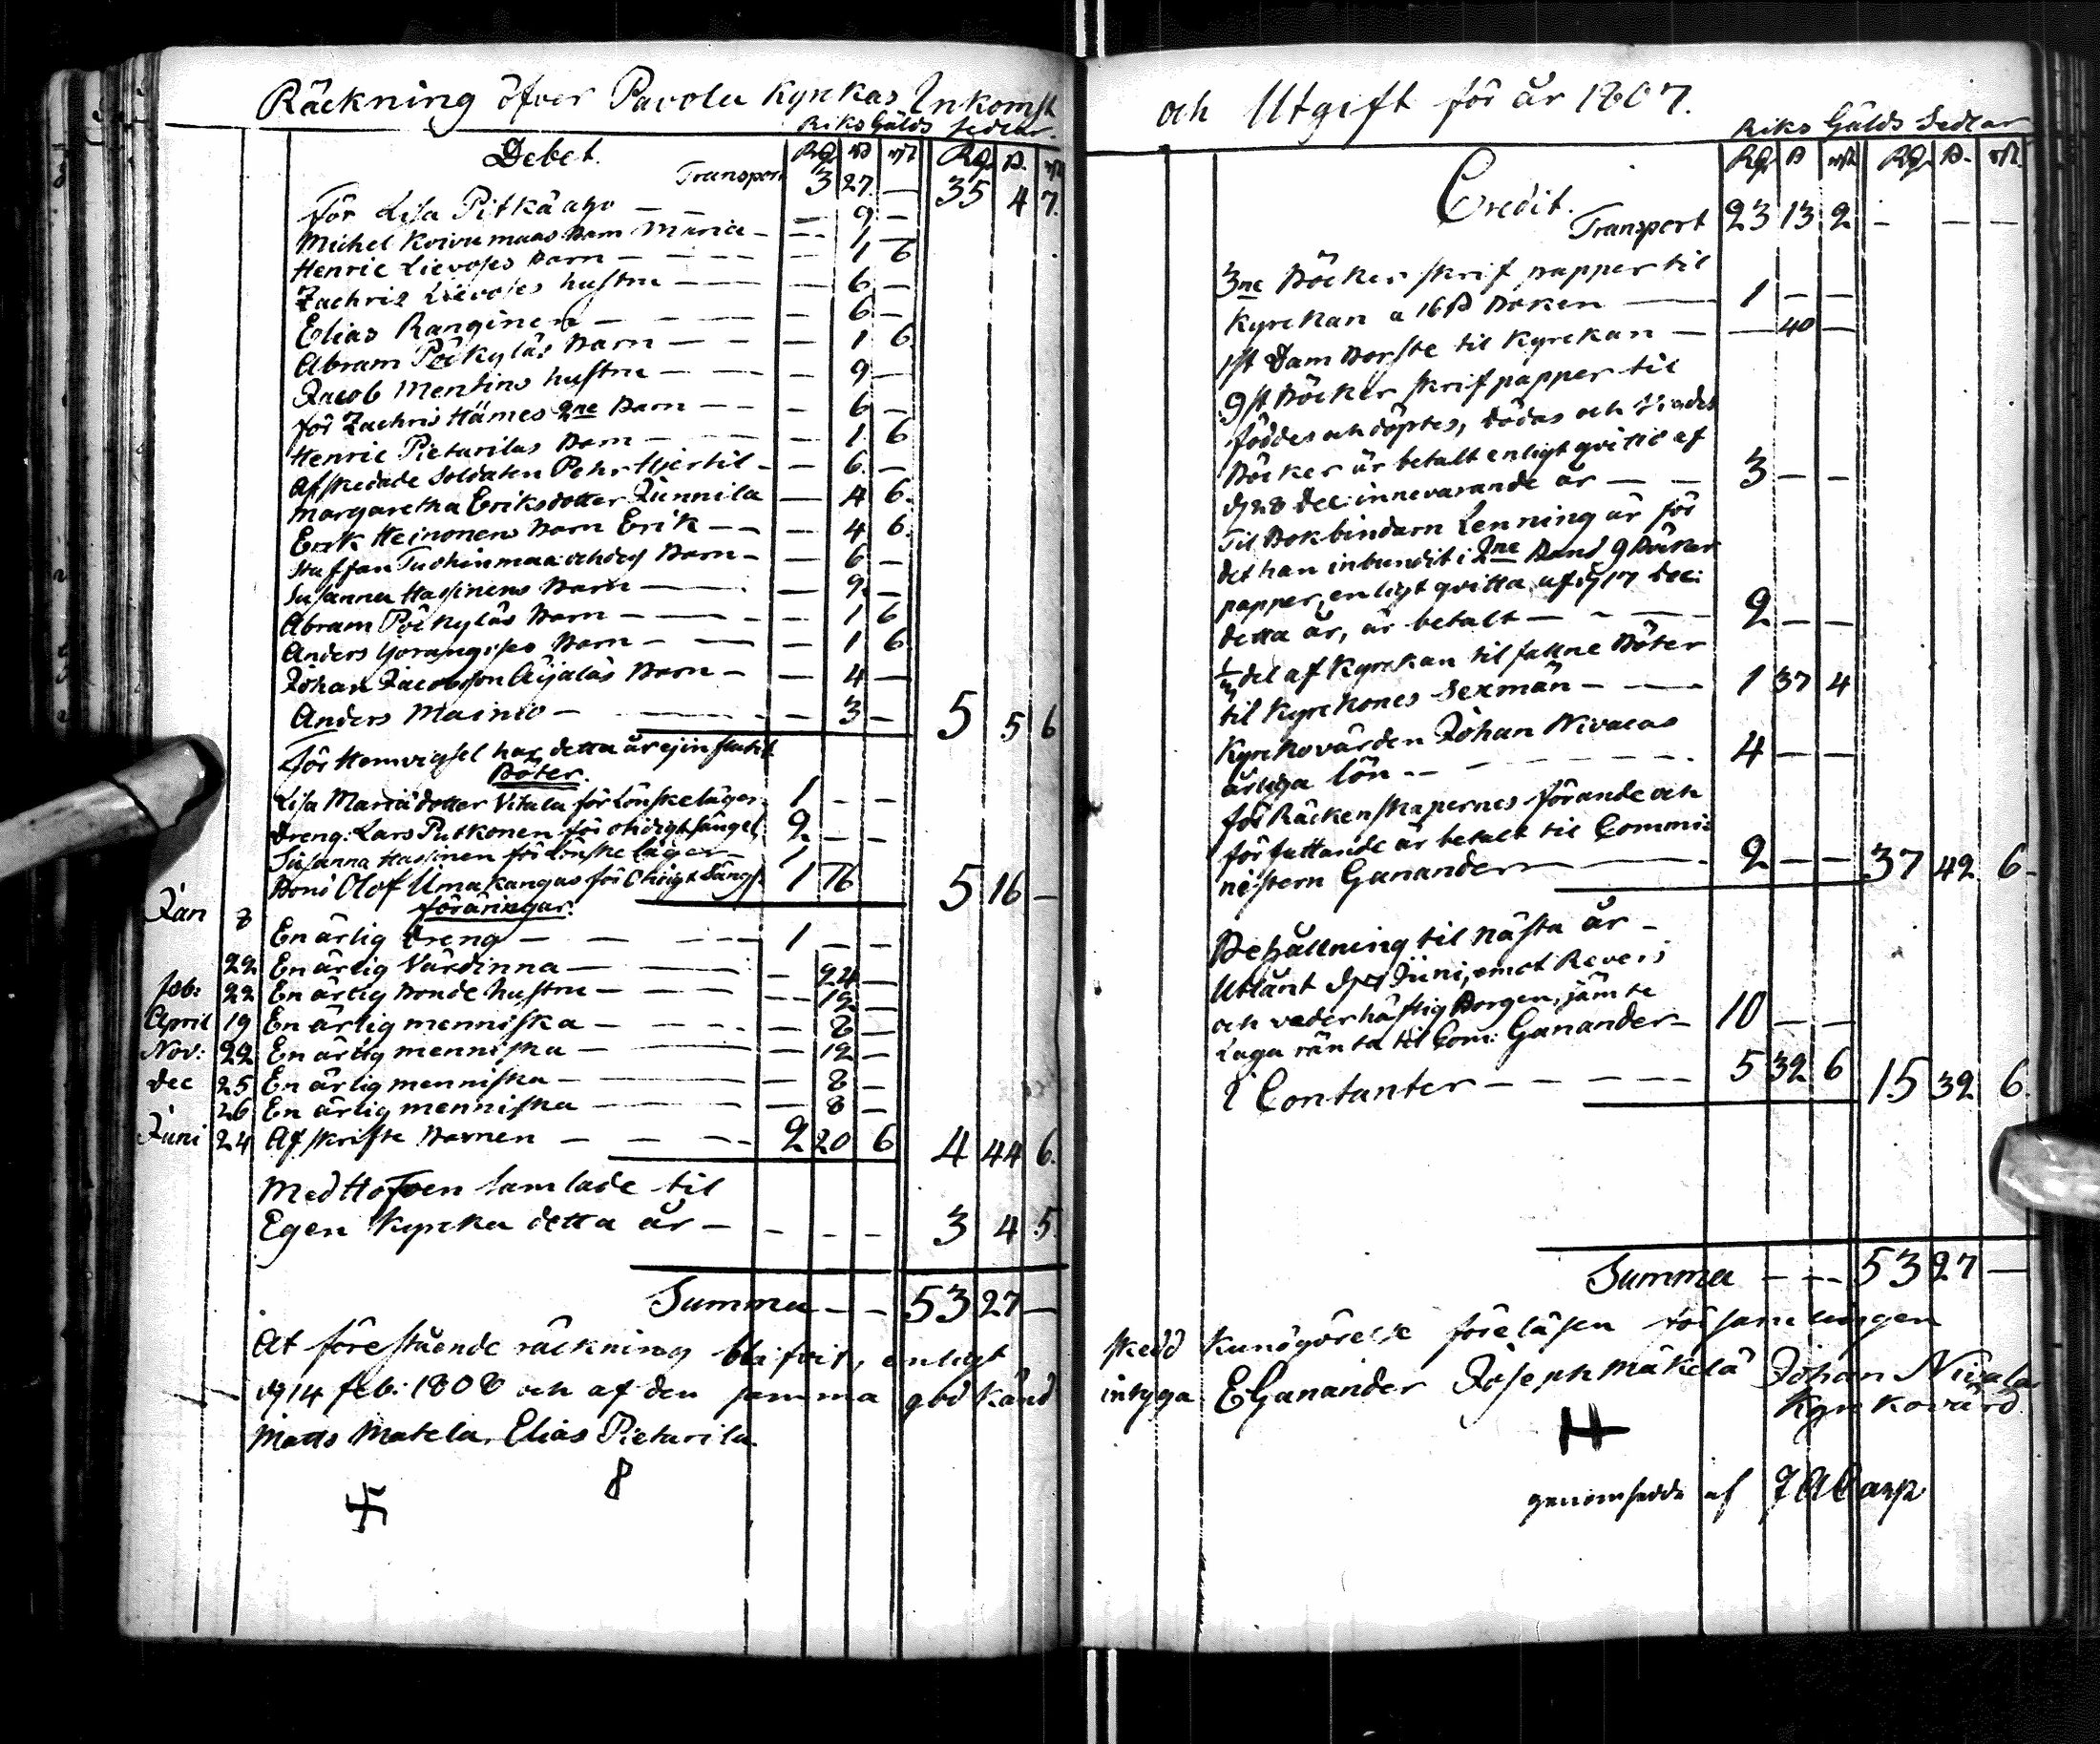 Räckning öfver Pavola Kyrkas Inkomst
Riks Gälds Sedlar.
Debet.
Rd ß rst Rd ß. rst
Transport 3 27 — 35 4 7.
för Lisa Pitkäaho — — — 9 —
Michel Koivumaas Barn Maria — — 1 —
Henric Lievoses Barn — — — 1 6
Zachris Lievoses hustru — — — 6 —
Elias Ranginen — — — 6 —
Abram Pöckyläs Barn — — — 1 6
Jacob Mentins hustru — — — 9 —
för Zachris Hämes 2ne Barn — — — 6 —
Henric Pietarilas Barn — — — 1 6
Afskedade Soldaten Pehr Hjertil — — 6 —
Margaretha Eriksdotter Junnila — 4 6
Erik Heinonens Barn Erik — — 4 6
Staffan Tuohinmaa och dess Barn — — 6 —
Susanna Hassinens Barn — — 9 —
Abram Pöckyläs Barn — — — 1 6
Anders Barn — — — 1 6
Johan Jacobsson Äijäläs Barn — — 4 —
Anders Mainio — — — 3 — 5 5 6
För Hemvigsel har detta år ej influtit
Böter.
Lisa Mariädotter Vitala för Lönskeläger 1 — —
Dreng: Lars Putkonen för otidigt sängel. 2 — —
Susanna Hassinen för Lönske läger — 1
Bond Olof Umakangas för Otidigt Sängl. 1 16 5 16 —
föräringar.
Jan 8 En ärlig Dreng — — — 1 — —
22 En ärlig Värdinna — — — 24 —
Feb: 22 En ärlig Bonde hustru — — — 12 —
April 19 En ärlig menniska — — — 8 —
Nov: 22 En ärlig menniska — — — 12 —
Dec 25 En ärlig menniska — — — 8 —
26 En ärlig menniska — — — 8 —
Juni 24 Af skrifte Barnen — — — 2 20 6 4 44 6.
Med Hofven samlade til
Egen Kyrcka detta år — — — — 3 4 5
Summa — — 53 27 —
At förestående räckning blifvit, enligt
d 14 feb: 1808 och af den samma god känd
Matts Matela. Elias Pietarila.
卐 8
och Utgift för år 1807.
Riks Gälds Sedlar
Credit.
Rd ß rst Rd ß. rst.
Transport 23 13 2 — — —
3ne Böcker skrif papper til
Kyrckan a 16 ß Boken — 1 — —
1 st Dam Borste til Kyrckan — — 40 —
9 st Böcker skrif papper til
föddes och döptes, dödas och Vigdes
Böcker är betalt enligt qvitto af
d 28 Dec: innevarande år — — 3 — —
Til Bokbindarn Lenning är för
det han inbundit i 2ne Band 9 Böcker
papper, enligt qvitta af d 17 Dec:
detta år, är betalt — — — 2 — —
del af Kyrckan til fallne Böter
til Kyrckones Sexmän — — 1 37 4
Kyrckovärden Johan Nivalas
årliga lön — — — 4 — —
för Räckenskapernes förande och
författande är betalt til Commi-
nistern Ganander — — 2 — — 37 42 6.
Behållning til nästa år —
Utlånt Juni, emot Revers
och vederhäftig Borgen, jämte
Laga ränta til Com: Ganander — 10 — —
i Contanter — — — — 5 32 6 15 32 6.
Summa — — 53 27 —
skedd Kundgörelse föreläsen församlingen
intyga EGanander Joseph Mäkelä Johan Nivala
Kyrkovärd
H
genomsedde af